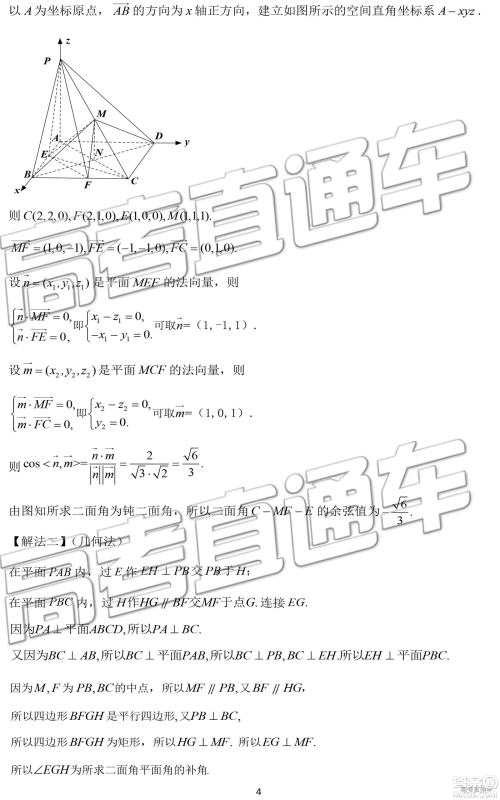 以 A 为坐标原点， AB 的方向为 x 轴正方向，建立如图所示的空间直角坐标系 A－xyz．
z
P
M
A
D
y
E
N
B
x
F
C
则 C(2,2,0), F(2,1,0), E(1,0,0), M(1,1,1).
MF = (1,0,−1), FE = (−1,−1,0), FC = (0,1,0).
设 n = (x₁, y₁, z₁) 是平面 MEF 的法向量，则
{ n · MF = 0, n · FE = 0, 即 { x₁ − z₁ = 0, −x₁ − y₁ = 0. 可取 n =（1,-1,1）．
设 m = (x₂, y₂, z₂) 是平面 MCF 的法向量，则
{ m · MF = 0, m · FC = 0, 即 { x₂ − z₂ = 0, y₂ = 0. 可取 m =（1,0,1）．
则 cos < n, m >= n · m / |n||m| = 2 / √3 · √2 = √6 / 3 .
由图知所求二面角为钝二面角，所以二面角 C − MF − E 的余弦值为 −√6 / 3 .
【解法二】（几何法）
在平面 PAB 内，过 E 作 EH ⊥ PB 交 PB 于 H；
在平面 PBC 内，过 H 作 HG ∥ BF 交 MF 于点 G. 连接 EG.
因为 PA ⊥ 平面 ABCD, 所以 PA ⊥ BC.
又因为 BC ⊥ AB, 所以 BC ⊥ 平面 PAB, 所以 BC ⊥ PB, BC ⊥ EH. 所以 EH ⊥ 平面 PBC.
因为 M, F 为 PB, BC 的中点，所以 MF ∥ PB, 又 BF ∥ HG，
所以四边形 BFGH 是平行四边形, 又 PB ⊥ BC,
所以四边形 BFGH 为矩形，所以 HG ⊥ MF. 所以 EG ⊥ MF.
所以 ∠EGH 为所求二面角平面角的补角.
4
高考直通车